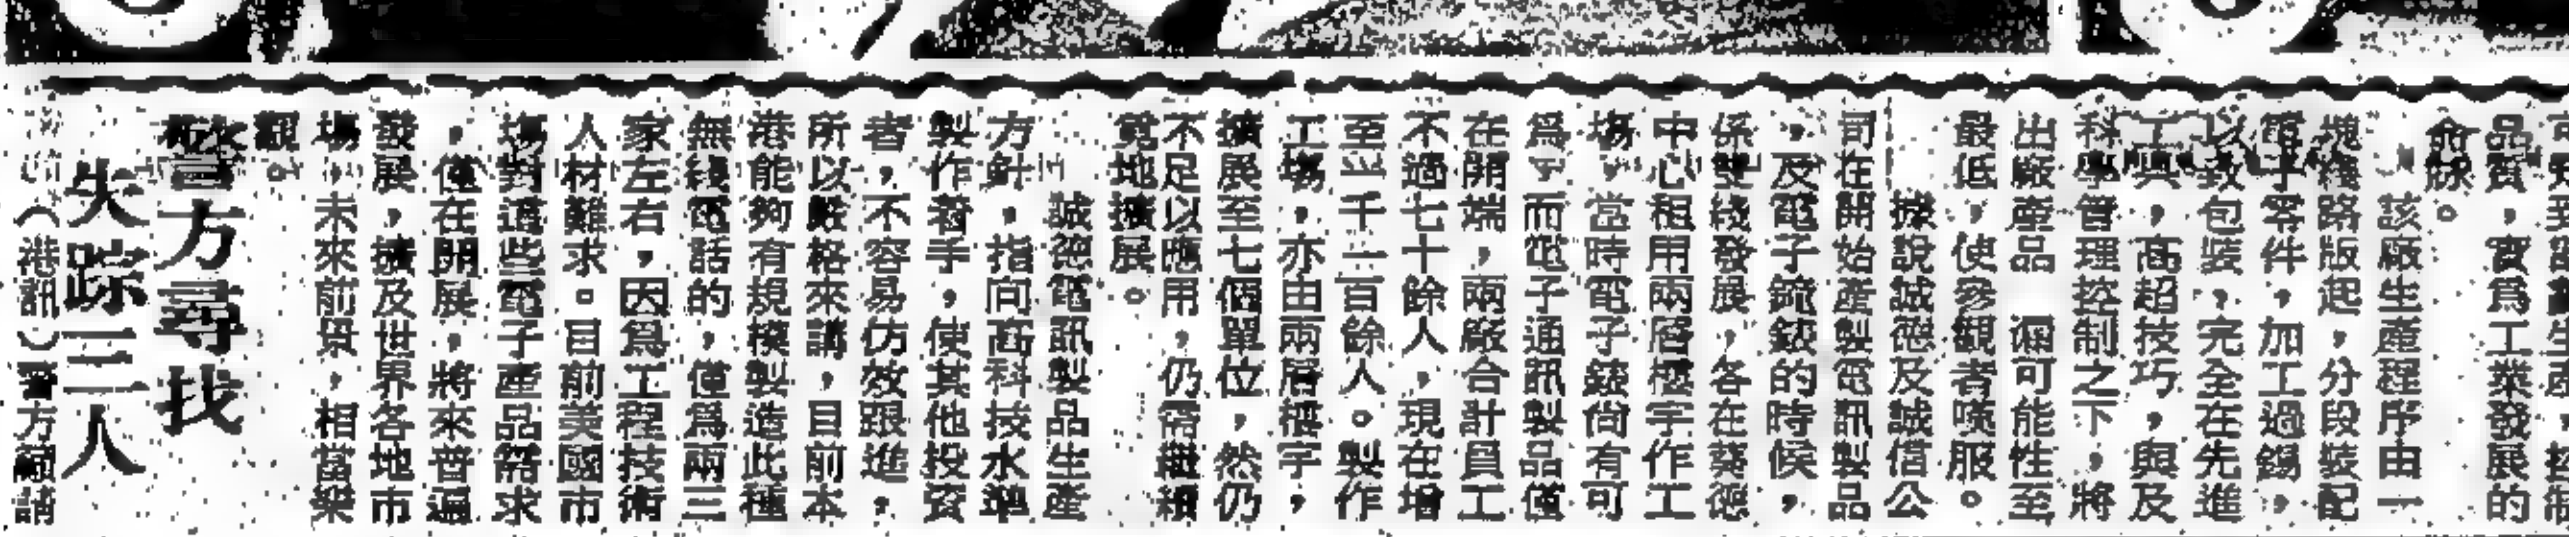 品質，實爲工業發展的
命脉。
該廠生產程序由一
塊綫路版起，分段裝配
電子零件，加工過錫，
以致包裝，完全在先進
工具，高超技巧，與及
科學管理控制之下，將
出廠產品　漏可能性至
最低，使參觀者嘆服。
據說誠德及誠信公
司在開始產製電訊製品
，及電子錶的時候，
係雙綫發展，各在葵德
中心租用兩層樓宇作工
塲，當時電子錶尙有可
爲，而電子通訊製品僅
在開端，兩廠合計員工
不過七十餘人，現在增
至 千二百餘人。製作
工塲，亦由兩層樓宇，
擴展至七個單位，然仍
不足以應用，仍需繼續
覓地擴展。
誠德電訊製品生產
方針，指向高科技水準
製作着手，使其他投資
者，不容易仿效跟進，
所以嚴格來講，目前本
港能夠有規模製造此種
無綫電話的，僅爲兩三
家左右，因爲工程技術
人材難求。目前美國市
塲對這些電子產品需求
，僅在開展，將來普遍
發展，擴及世界各地市
塲，未來前景，相當樂
觀。
警方尋找
失踪三人
（港訊）警方籲請